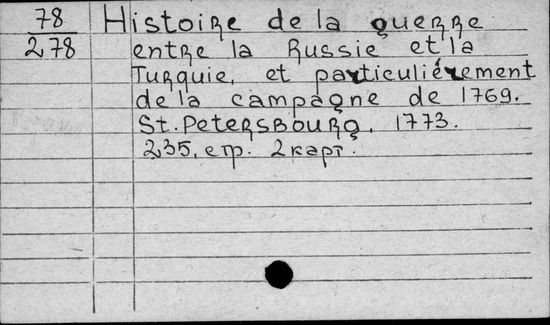 78
278
Histoire de la guerre
entre la Russie et la
Turquie, et particuliérement
de la campagne de 1769.
St. Petersbourg, 1773.
235, стр. 2 карт.